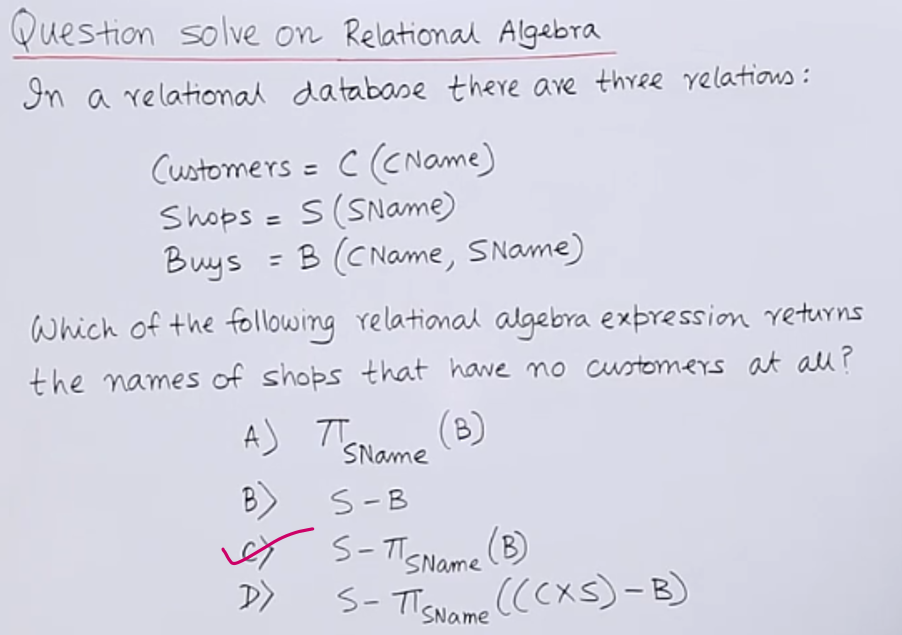 Question solve on Relational Algebra
In a relational database there are three relations:
Customers = C (CName)
Shops = S (SName)
Buys = B (CName, SName)
Which of the following relational algebra expression returns
the names of shops that have no customers at all?
A) π SName (B)
B) S - B
C) S - π SName (B)
D) S - π SName (((C×S) - B)